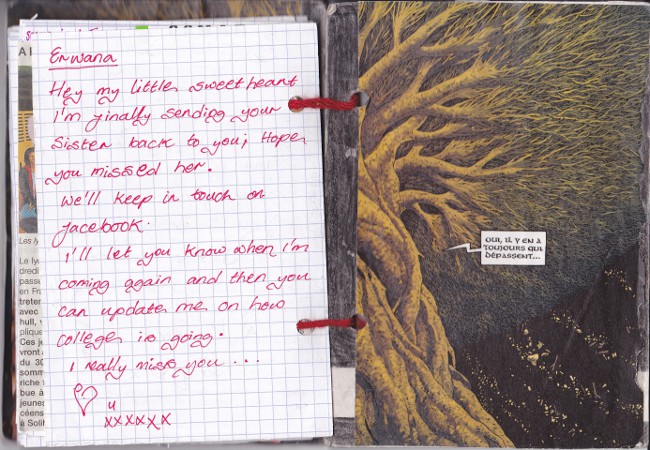 Erwana
Hey my little sweetheart
I'm finally sending your
Sister back to you; Hope,
you missed her.
We'll keep in touch on
facebook.
I'll let you know when I'm
coming again and then you
can update me on how
college is going.
I really miss you ...
u
xxxxxx
Les ly
Le ly
dredi
passe
en Fra
treten
avec
hull, v
plique
Ces je
vront
du 30
somm
riche
bue à
jeunes
céens
à Solit
OUI, IL Y EN A
TOUJOURS QUI
DÉPASSENT...